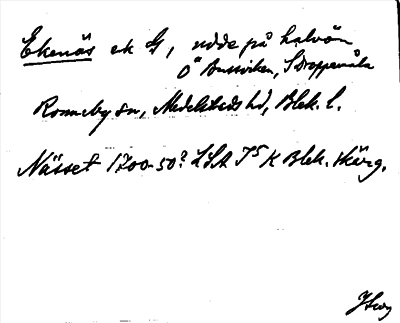 Ekenäs ek G, udde på halvön
Ö Aussviken, S Droppemåla
Ronneby sn, Medelstads hd, Blek. l.
Nässet 1700-50? LSA J5 K Blek. skärg.